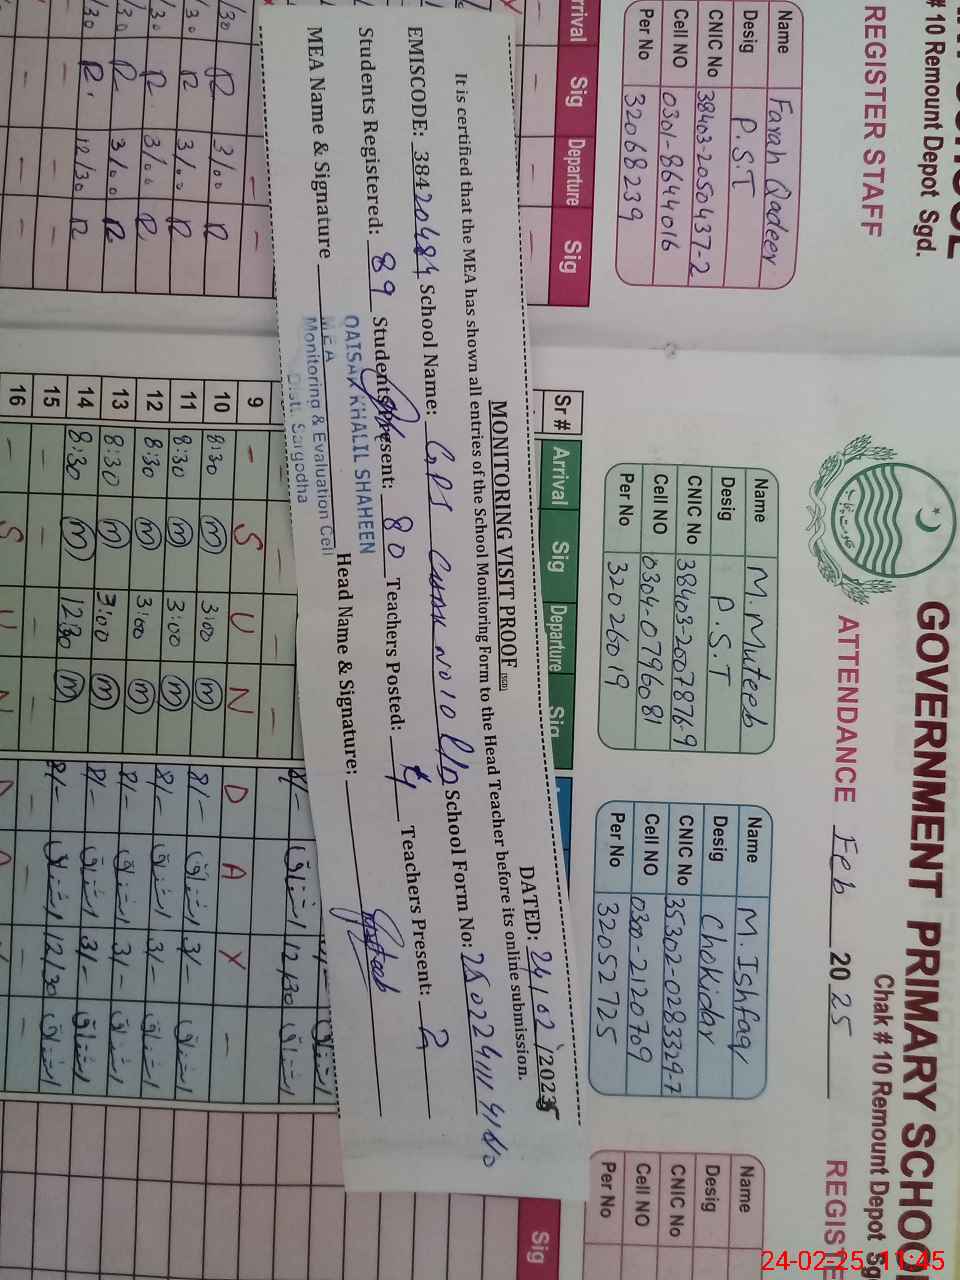 GOVERNMENT PRIMARY SCHOO
Chak # 10 Remount Depot Sg
# 10 Remount Depot Sgd.
REGISTER STAFF
ATTENDANCE Feb 2025 REGISTE
Name Farah Qadeer
Desig P.S.T
CNIC No 38403-2050437-2
Cell NO 0301-8644016
Per No 32068239
Name M. Muteeb
Desig P.S.T
CNIC No 38403-2007876-9
Cell NO 0304-0796081
Per No 32026019
Name M. Ishfaq
Desig Chokidar
CNIC No 35302-0283329-7
Cell NO 0300-2120709
Per No 32052725
Name
Desig
CNIC No
Cell NO
Per No
rrival Sig Departure Sig
Sr# Arrival Sig Departure Sig
Sig
MONITORING VISIT PROOF
DATED: 24/02/2025
It is certified that the MEA has shown all entries of the School Monitoring Form to the Head Teacher before its online submission.
EMISCODE: 38420484 School Name: School Form No:
Students Registered: 89 Students Present: 80 Teachers Posted: 4 Teachers Present: 2
MEA Name & Signature Head Name & Signature:
QAISAR KHALIL SHAHEEN
MEA
Monitoring & Evaluation Cell
Distt. Sargodha
9 - S U N D A Y -
10 8:30 m 3:00 m 8/- اشفاق 3/- اشفاق
11 8:30 m 3:00 m 8/- اشفاق 3/- اشفاق
12 8:30 m 3:00 m 8/- اشفاق 3/- اشفاق
13 8:30 m 3:00 m 8/- اشفاق 3/- اشفاق
14 8:30 m 12:30 m 8/- اشفاق 12/30 اشفاق
15 - - - -
16 - S U N D A
24-02-25, 11:45